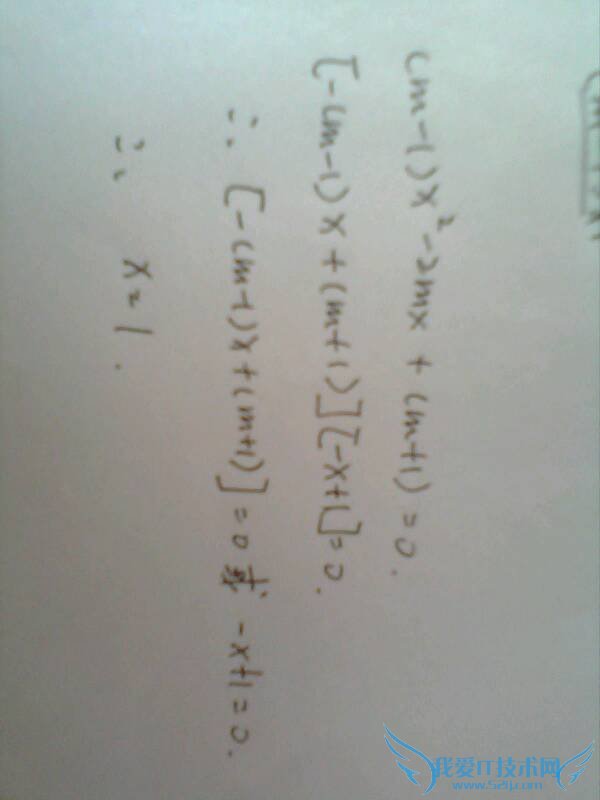 (m-1)x²-2mx+(m+1)=0.
[-(m-1)x+(m+1)][-x+1]=0.
∴ [-(m-1)x+(m+1)]=0 或 -x+1=0.
∴ x=1.
我爱IT技术网
www.52ij.com